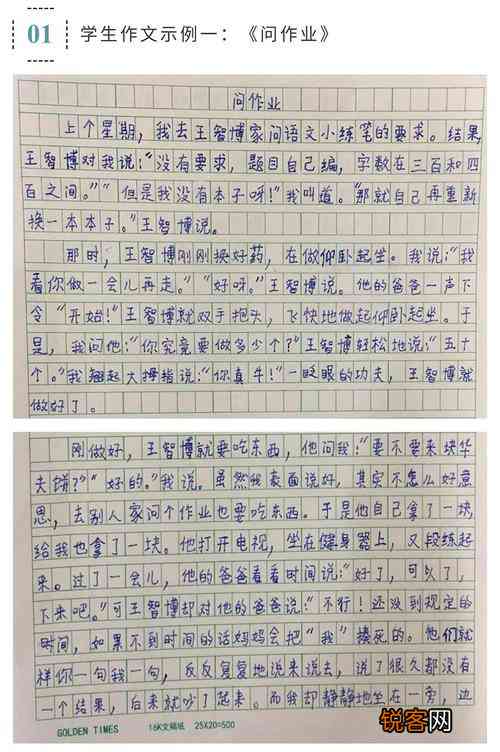 01 学生作文示例一：《问作业》
问作业
上个星期，我去王智博家问语文小练笔的要求。结果，
王智博对我说：“没有要求，题目自己编，字数在三百和四
百之间。”“但是我没有本子呀！”我叫道。“那就自己再重新
换一本本子。”王智博说。
那时，王智博刚刚换好药，在做仰卧起坐。我说：“我
看你做一会儿再走。”“好呀。”王智博说。他的爸爸一声下
令“开始！”王智博就双手抱头，飞快地做起仰卧起坐。于
是，我问他：“你究竟要做多少个？”王智博轻松地说：“五十
个。”我翘起大拇指说：“你真牛！”一眨眼的功夫，王智博就
做好了。
刚做好，王智博就要吃东西，他问我：“要不要来块华
夫饼？”“好的。”我说。虽然我表面说好，其实不怎么好意
思，去别人家问个作业也要吃东西。于是他自己拿了一块
给我也拿了一块。他打开电视，坐在健身器上，又段练起
来。过了一会儿，他的爸爸看看时间说：“好了，可以了，
下来吧。”可王智博却对他的爸爸说：“不行！还没到规定的
时间，如果不到时间的话妈妈会把“我”揍死的。他们就
样你一句我一句，反反复复地说来说去，说了很久都没有
一个结果，后来就吵了起来。而我却静静地坐在一旁，边
GOLDEN TIMES 16K文稿纸 25X20=500
锐客网